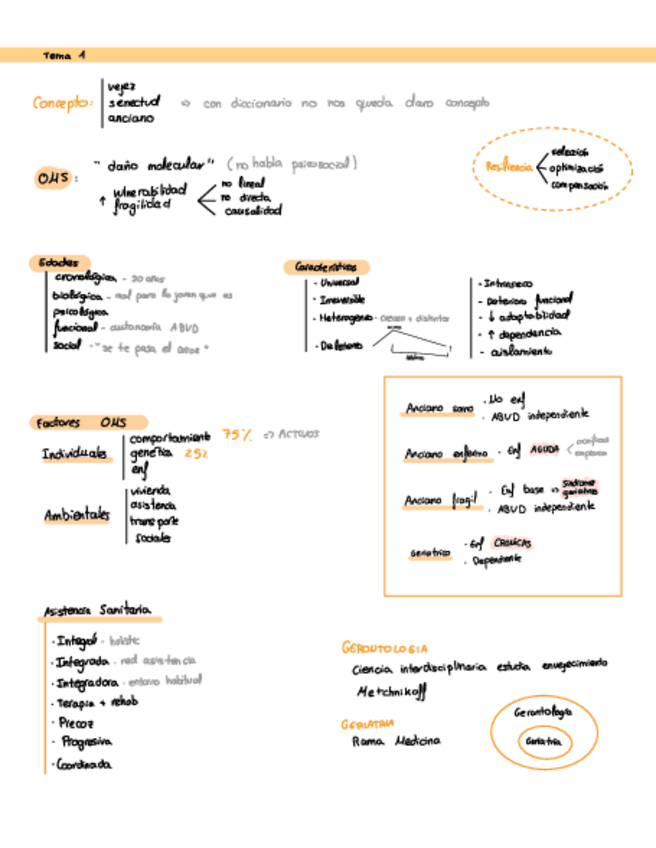 Tema 1
Concepto:
vejez
senectud
anciano
=> con diccionario no nos queda claro concepto
OMS:
"daño molecular" (no habla psicosocial)
↑ vulnerabilidad
fragilidad
no lineal
no directa
causalidad
Resiliencia
selección
optimización
compensación
Edades
cronológica - 20 años
biológica - real para lo joven que es
psicológica
funcional - autonomía ABVD
social - "se te pasa el arroz"
Características
- Universal
- Irreversible
- Heterogéneo
- Deletéreo
- Intrínseco
- Deterioro funcional
- ↓ adaptabilidad
- ↑ dependencia
- aislamiento
Factores OMS
Individuales
comportamiento 75% => ACTIVOS
genética 25%
enf
Ambientales
vivienda
asistencia
transporte
sociales
Anciano sano
· No enf
· ABVD independiente
Anciano enfermo · Enf AGUDA
Anciano frágil
· Enf base => síndrome geriátrico
· ABVD independiente
Geriátrico
· Enf CRÓNICAS
· Dependiente
Asistencia Sanitaria
· Integral - holistic
· Integrada - red asistencia
· Integradora - entorno habitual
· Terapia + rehab
· Precoz
· Progresiva
· Coordinada
GERONTOLOGIA
Ciencia interdisciplinaria estudia envejecimiento
Metchnikoff
GERIATRIA
Rama Medicina
Gerontología
Geriatría